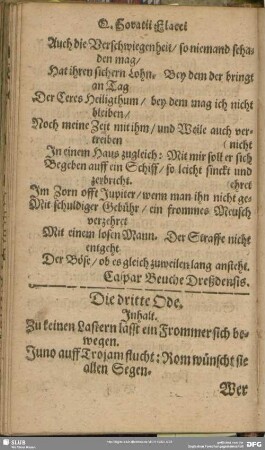 Q. Horatii Flacci
Auch die Verschwiegenheit / so niemand scha-
den mag /
Hat ihren sichern Lohn. Bey dem der bringt
an Tag
Der Ceres Heiligthum / bey dem mag ich nicht
bleiben /
Noch meine Zeit mit ihm / und Weile auch ver-
treiben (nicht
In einem Haus zugleich: Mit mir soll er sich
Begeben auff ein Schiff / so leicht sinckt und
zerbricht. ehret
Im Zorn offt Jupiter / wenn man ihn nicht ge-
Mit schuldiger Gebühr / ein frommes Mensch
verzehret
Mit einem losen Mann. Der Straffe nicht
entgeht
Der Böse / ob es gleich zuweilen lang ansteht.
Caspar Beuche Dreßdensis.
Die dritte Ode.
Inhalt.
Zu keinen Lastern läst ein Frommer sich be-
wegen.
Juno auff Trojam flucht: Rom wünscht sie
allen Segen.
Wer
SLUB
DFG